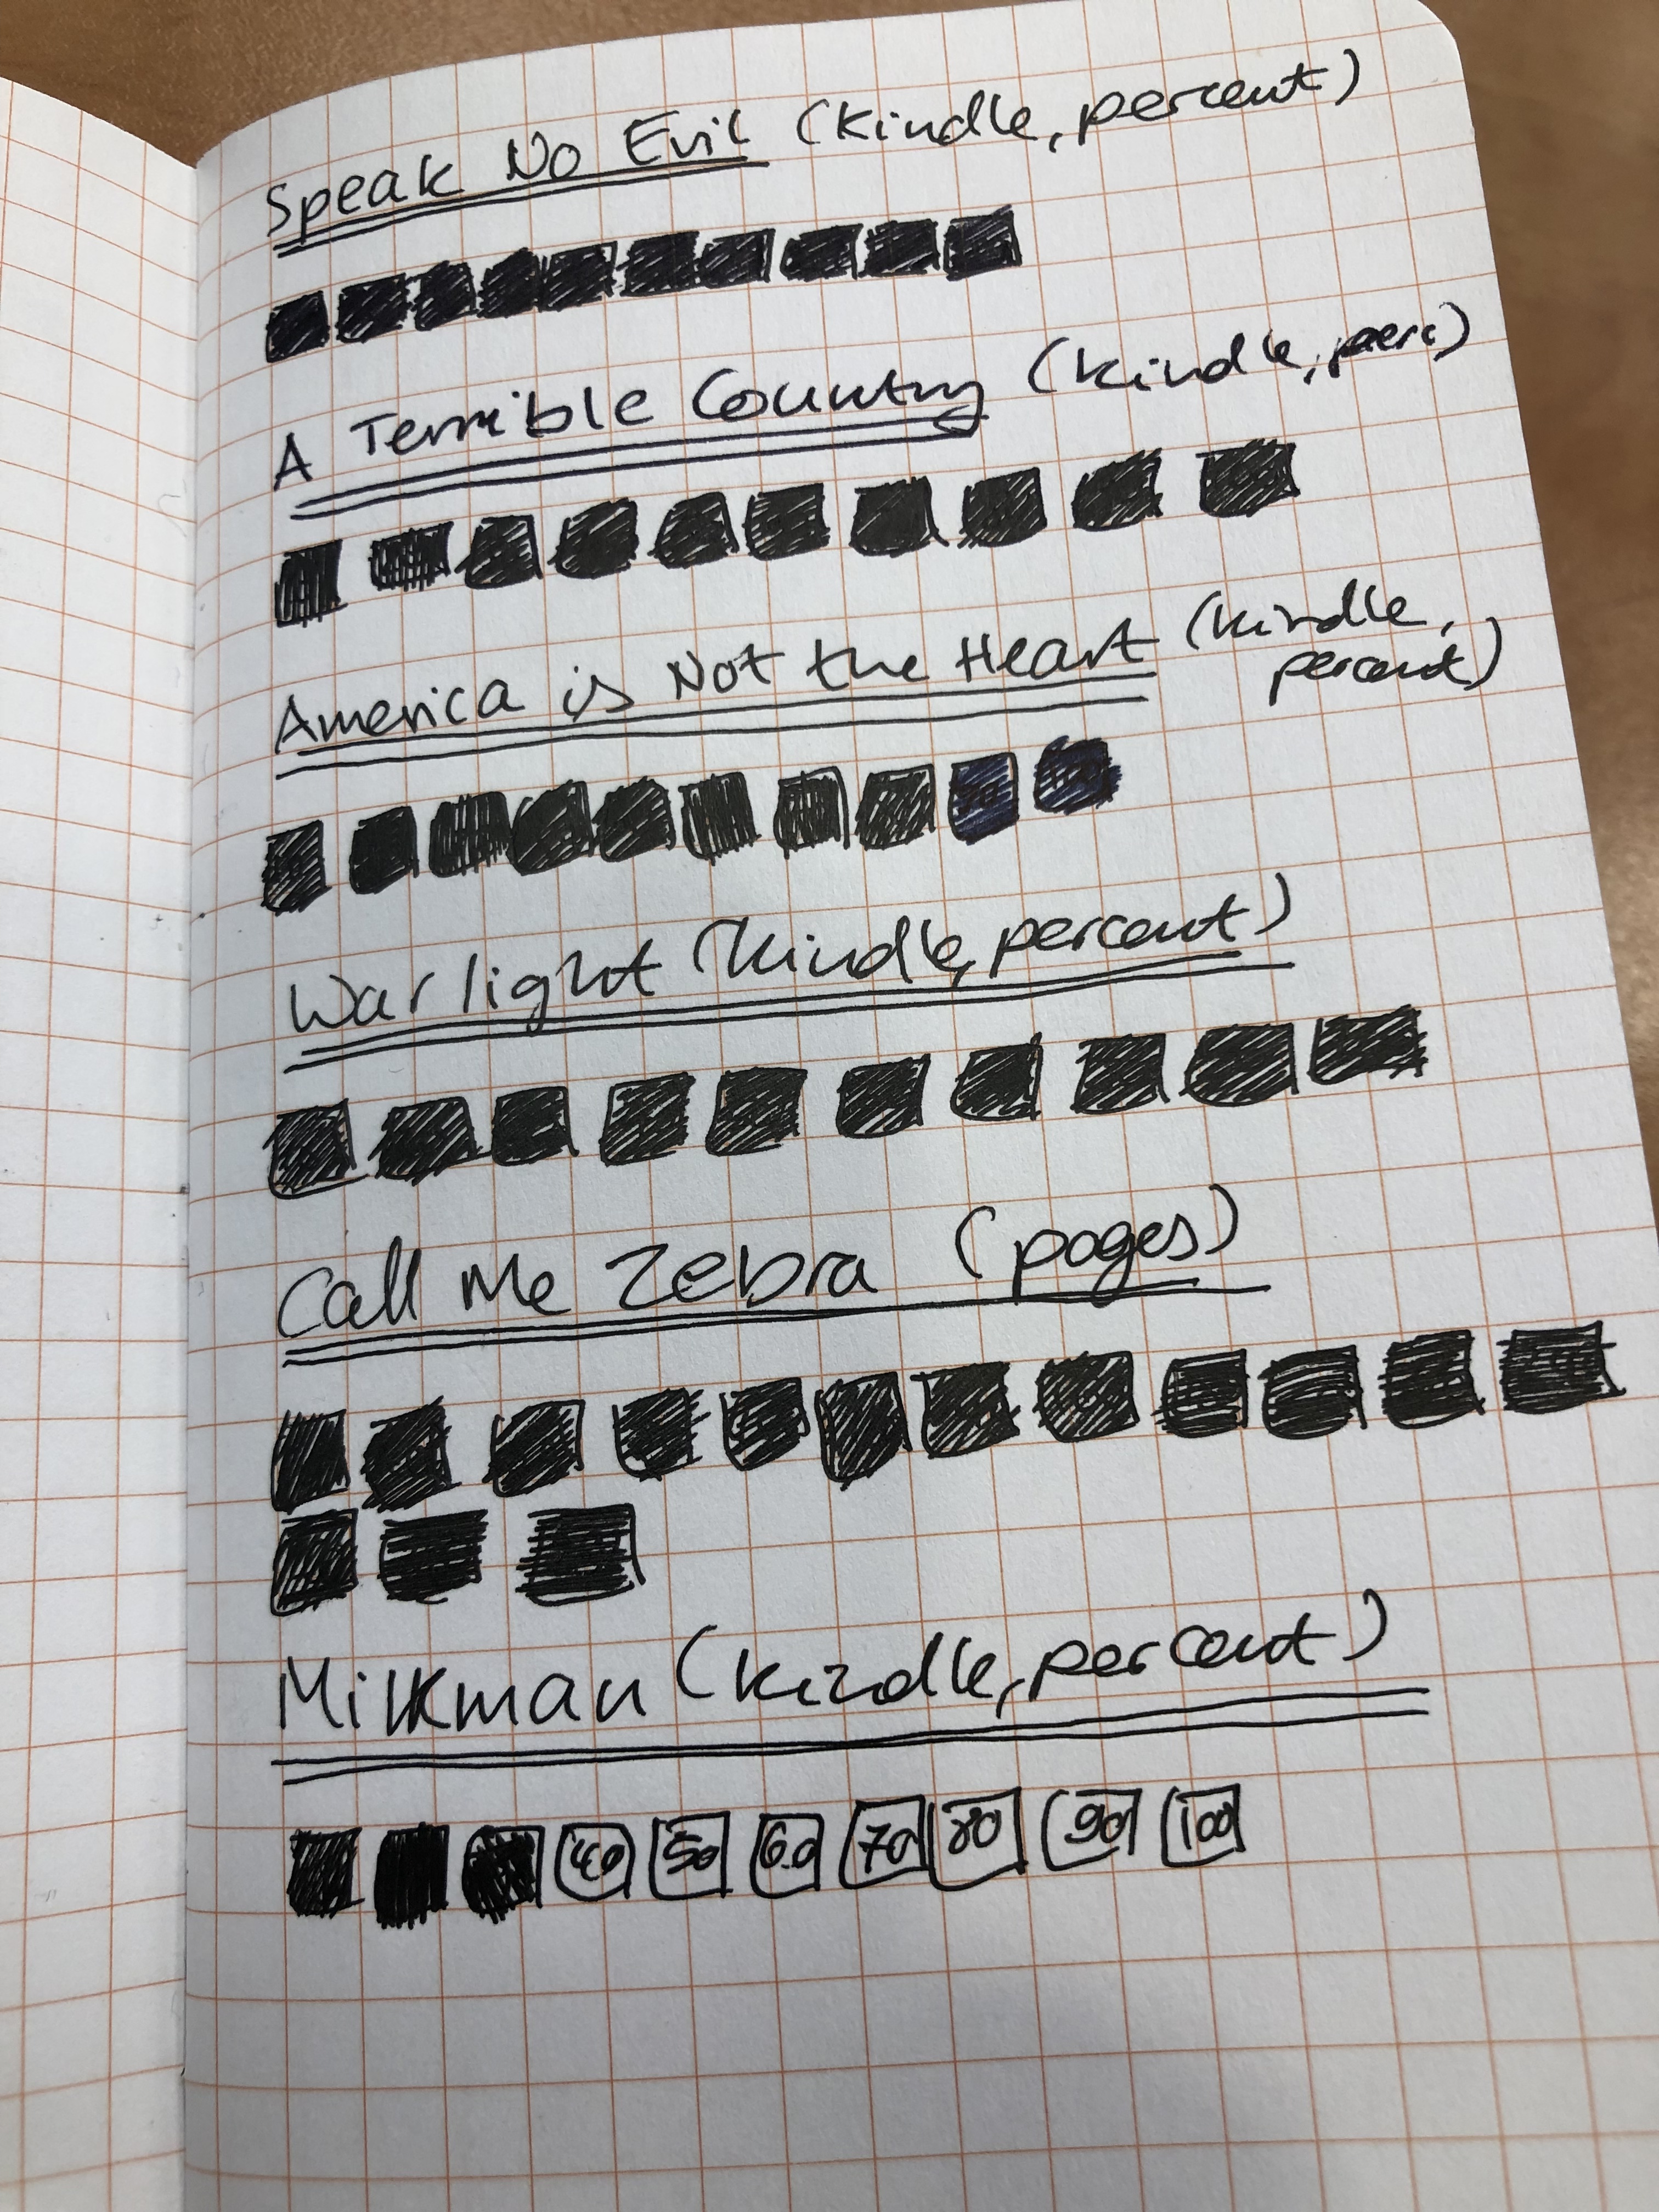 Speak No Evil (Kindle, percent)
A Terrible Country (Kindle, perc)
America is Not the Heart (Kindle,
percent)
Warlight (Kindle, percent)
Call Me Zebra (pages)
Milkman (Kindle, percent)
40 50 60 70 80 90 100